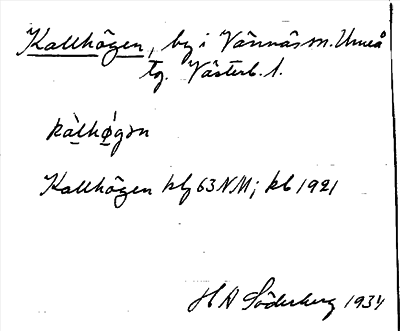 Kallhögen, by i Vännäs sn. Umeå
tg. Västerb. l.
kàlhǿgən
Kallhögen kbf 63 NM; kb 1921
H A Söderberg 1934